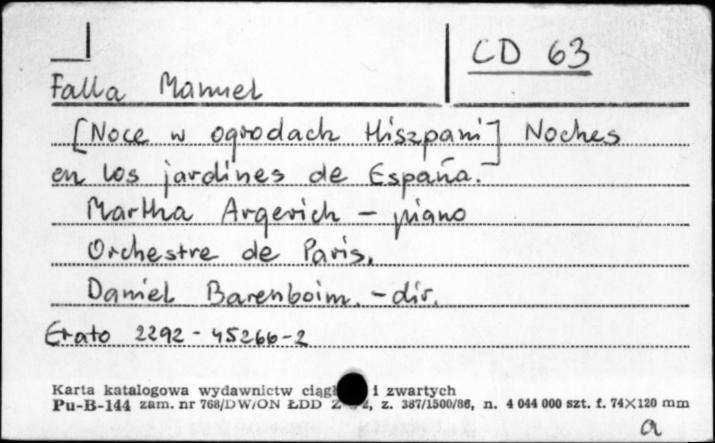 CD 63
Falla Manuel
[Noce w ogrodach Hiszpanii] Noches
en los jardines de España.
Martha Argerich - piano
Orchestre de Paris.
Daniel Barenboim. - dir.
Erato 2292 - 45266-2
Karta katalogowa wydawnictw i zwartych
Pu-B-144 zam. nr 768/DW/ON ŁDD z. 387/1500/86, n. 4 044 000 szt. f. 74×120 mm
a